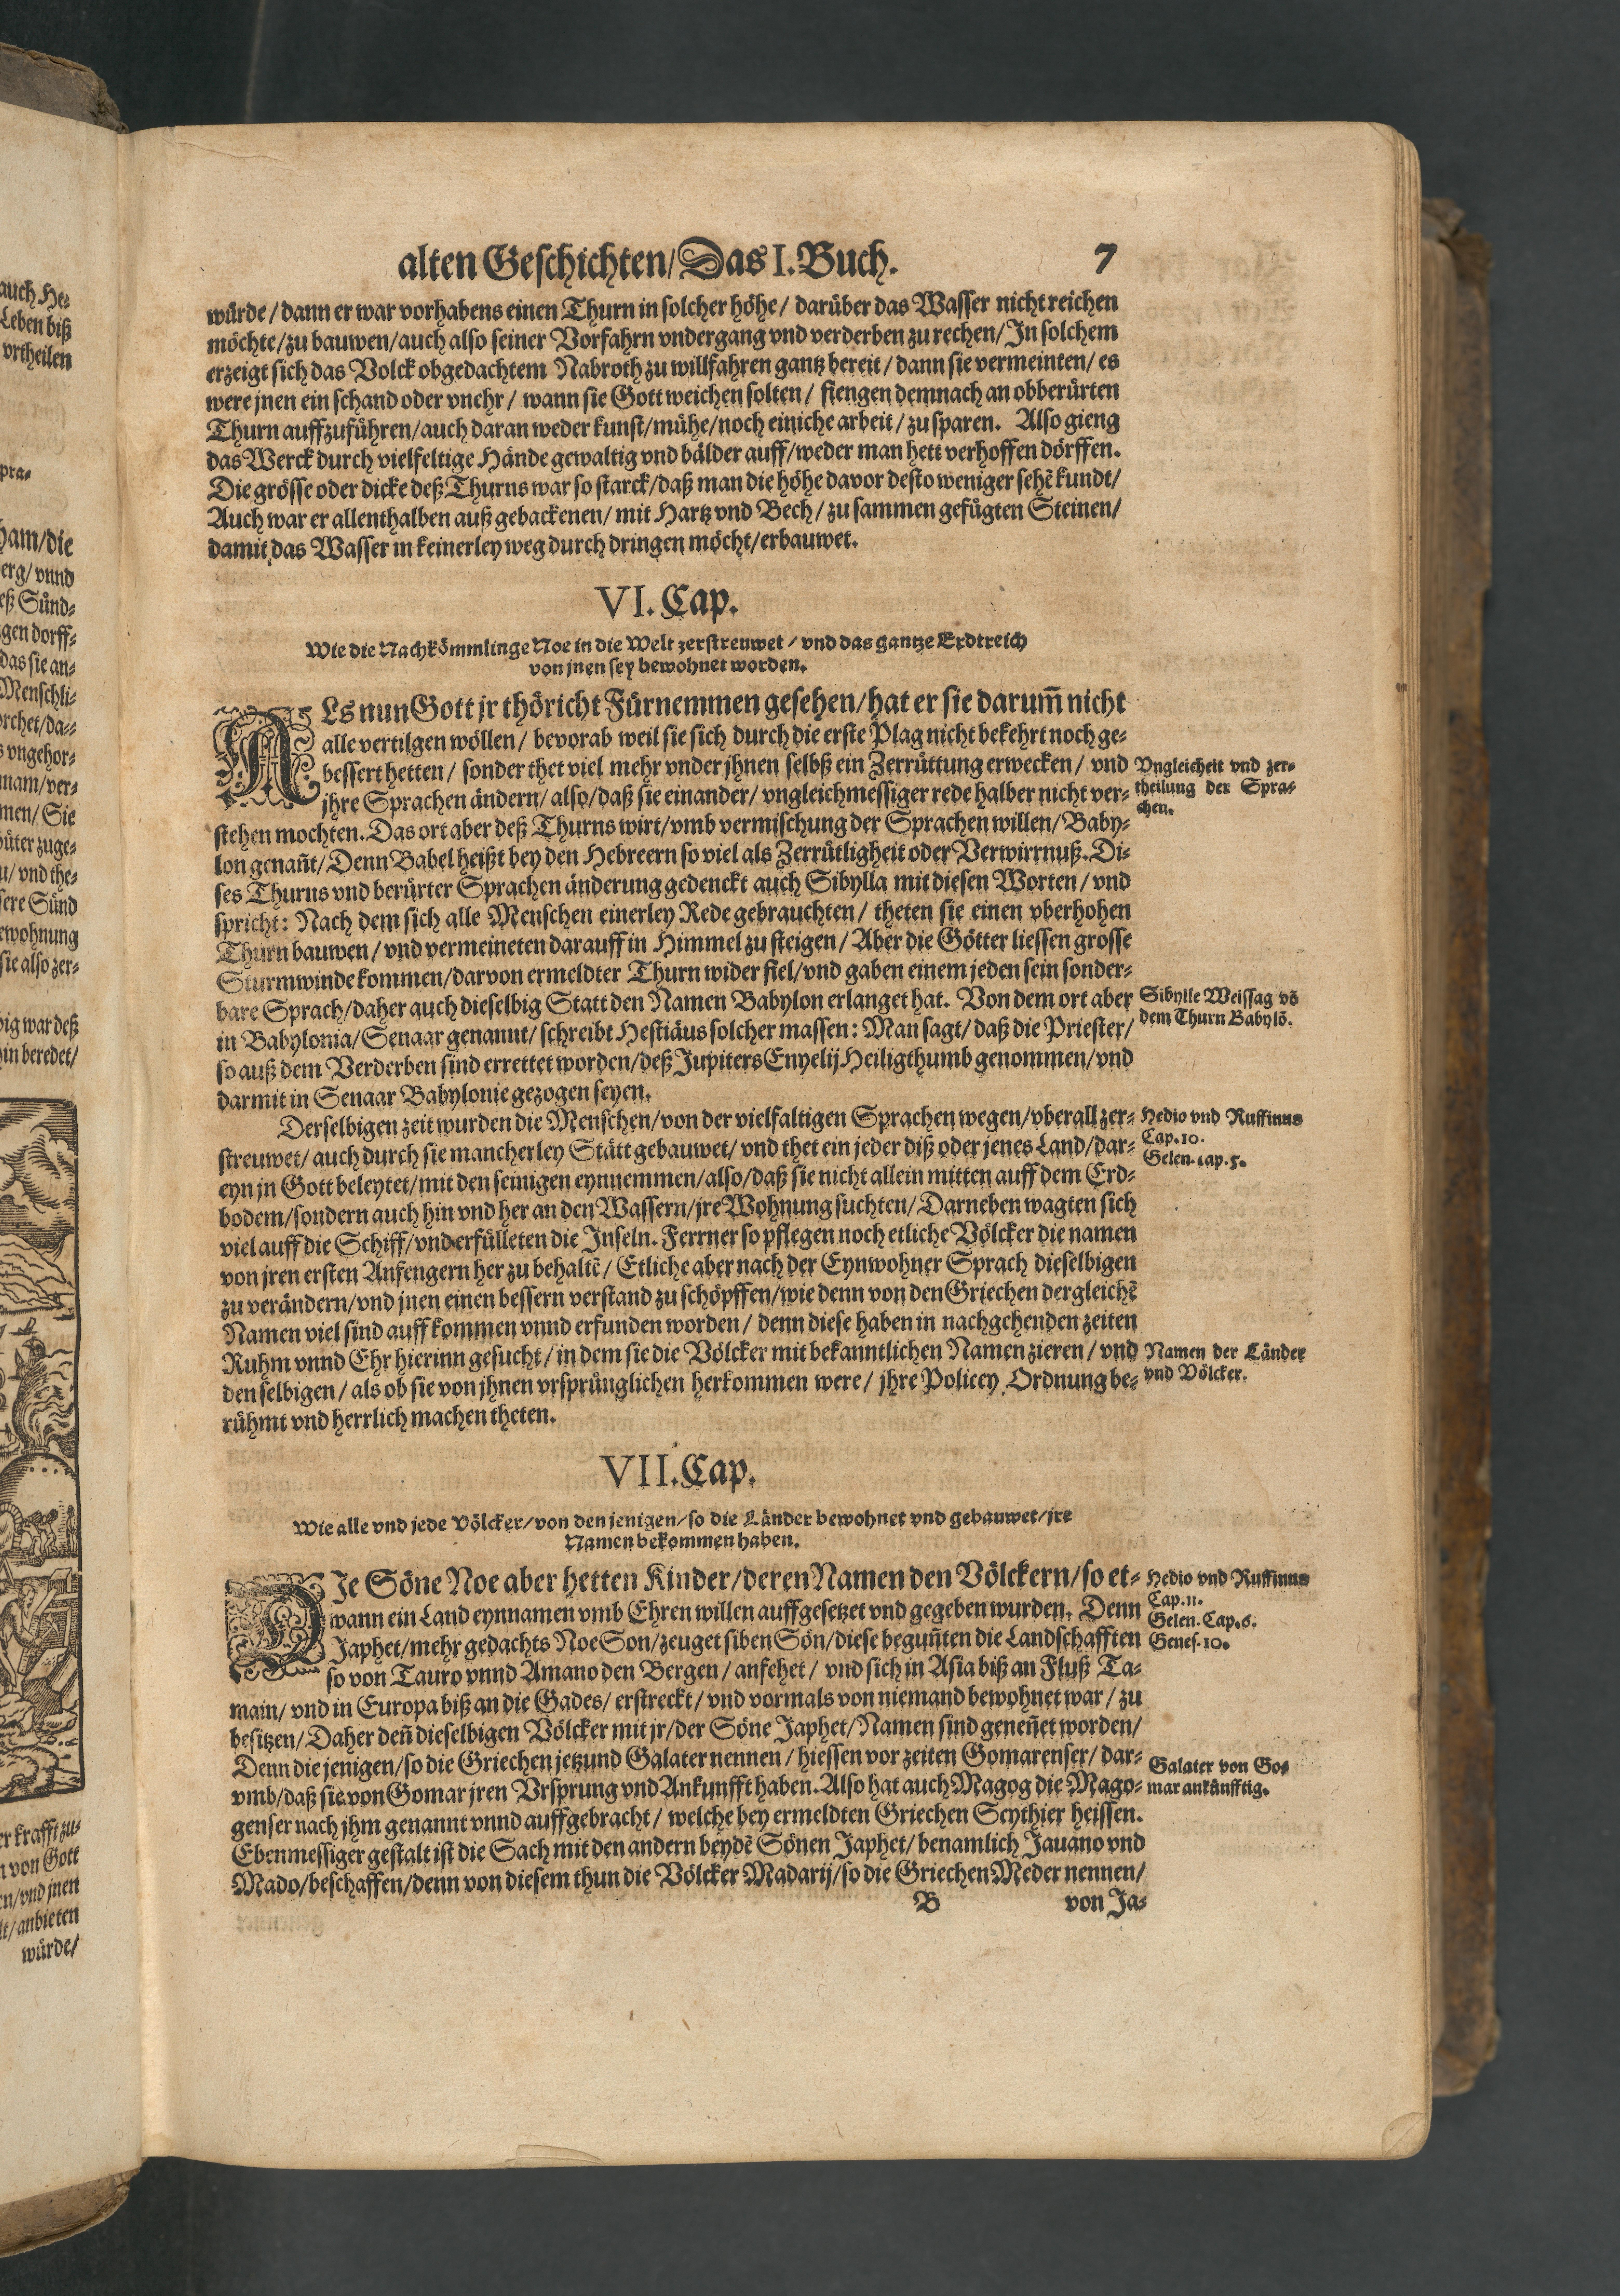 alten Geschichten/Das I. Buch. 7
würde/dann er war vorhabens einen Thurn in solcher höhe/darüber das Wasser nicht reichen
möchte/zu bauwen/auch also seiner Vorfahrn vndergang vnd verderben zu rechen/In solchem
erzeigt sich das Volck obgedachtem Nabroth zu willfahren gantz bereit/dann sie vermeinten/es
were jnen ein schand oder vnehr/wann sie Gott weichen solten/fiengen demnach an obberürten
Thurn auffzuführen/auch daran weder kunst/mühe/noch einiche arbeit/zu sparen. Also gieng
das Werck durch vielfeltige Hände gewaltig vnd bälder auff/weder man hett verhoffen dörffen.
Die grösse oder dicke deß Thurns war so starck/daß man die höhe davor desto weniger sehẽ kundt/
Auch war er allenthalben auß gebackenen/mit Hartz vnd Bech/zu sammen gefügten Steinen/
damit das Wasser in keinerley weg durch dringen möcht/erbauwet.
VI. Cap.
Wie die Nachkömmlinge Noe in die Welt zerstreuwet/vnd das gantze Erdtreich
von jnen sey bewohnet worden.
ALs nun Gott jr thöricht Fürnemmen gesehen/hat er sie darum̃ nicht
alle vertilgen wöllen/bevorab weil sie sich durch die erste Plag nicht bekehrt noch ge-
bessert hetten/sonder thet viel mehr vnder jhnen selbß ein Zerrüttung erwecken/vnd
jhre Sprachen ändern/also/daß sie einander/vngleichmessiger rede halber nicht ver-
stehen mochten. Das ort aber deß Thurns wirt/vmb vermischung der Sprachen willen/Baby-
lon genañt/Denn Babel heißt bey den Hebreern so viel als Zerrütligheit oder Verwirrnuß. Di-
ses Thurns vnd berürter Sprachen änderung gedenckt auch Sibylla mit diesen Worten/vnd
spricht: Nach dem sich alle Menschen einerley Rede gebrauchten/theten sie einen vberhohen
Thurn bauwen/vnd vermeineten darauff in Himmel zu steigen/Aber die Götter liessen grosse
Sturmwinde kommen/darvon ermeldter Thurn wider fiel/vnd gaben einem jeden sein sonder-
bare Sprach/daher auch dieselbig Statt den Namen Babylon erlanget hat. Von dem ort aber
in Babylonia/Senaar genannt/schreibt Hestiäus solcher massen: Man sagt/daß die Priester/
so auß dem Verderben sind errettet worden/deß Jupiters Enyelij Heiligthumb genommen/vnd
darmit in Senaar Babylonie gezogen seyen.
Vngleicheit vnd zer-
theilung der Spra-
chen.
Sibylle Weissag võ
dem Thurn Babylõ.
Derselbigen zeit wurden die Menschen/von der vielfaltigen Sprachen wegen/vberall zer-
streuwet/auch durch sie mancherley Stätt gebauwet/vnd thet ein jeder diß oder jenes Land/dar-
eyn jn Gott beleytet/mit den seinigen eynnemmen/also/daß sie nicht allein mitten auff dem Erd-
bodem/sondern auch hin vnd her an den Wassern/jre Wohnung suchten/Darneben wagten sich
viel auff die Schiff/vnd erfülleten die Inseln. Ferrner so pflegen noch etliche Völcker die namen
von jren ersten Anfengern her zu behaltẽ/Etliche aber nach der Eynwohner Sprach dieselbigen
zu verändern/vnd jnen einen bessern verstand zu schöpffen/wie denn von den Griechen dergleichẽ
Namen viel sind auff kommen vnnd erfunden worden/denn diese haben in nachgehenden zeiten
Ruhm vnnd Ehr hierinn gesucht/in dem sie die Völcker mit bekanntlichen Namen zieren/vnd
den selbigen/als ob sie von jhnen vrsprünglichen herkommen were/jhre Policey Ordnung be-
rühmt vnd herrlich machen theten.
Hedio vnd Ruffinus
Cap. 10.
Gelen. cap. 5.
Namen der Länder
vnd Völcker.
VII. Cap.
Wie alle vnd jede Völcker/von den jenigen/so die Länder bewohnet vnd gebauwet/jre
Namen bekommen haben.
DIe Söne Noe aber hetten Kinder/deren Namen den Völckern/so et-
wann ein Land eynnamen vmb Ehren willen auffgesetzet vnd gegeben wurden. Denn
Japhet/mehr gedachts Noe Son/zeuget siben Sön/diese beguñten die Landschafften
so von Tauro vnnd Amano den Bergen/anfehet/vnd sich in Asia biß an Fluß Ta-
main/vnd in Europa biß an die Gades/erstreckt/vnd vormals von niemand bewohnet war/zu
besitzen/Daher deñ dieselbigen Völcker mit jr/der Söne Japhet/Namen sind geneñet worden/
Denn die jenigen/so die Griechen jetzund Galater nennen/hiessen vor zeiten Gomarenser/dar-
vmb/daß sie von Gomar jren Vrsprung vnd Ankunfft haben. Also hat auch Magog die Mago-
genser nach jhm genannt vnnd auffgebracht/welche bey ermeldten Griechen Scythier heissen.
Ebenmessiger gestalt ist die Sach mit den andern beydẽ Sönen Japhet/benamlich Jauano vnd
Mado/beschaffen/denn von diesem thun die Völcker Madarij/so die Griechen Meder nennen/
B von Ja-
Hedio vnd Ruffinus
Cap. 11.
Gelen. Cap. 6.
Genes. 10.
Galater von Go-
mar ankünfftig.
auch He-
Leben biß
vrtheilen
pra-
ham/die
erg/vnnd
eß Sünd-
gen dorff-
das sie an-
Menschli-
orchet/da-
s vngehor-
mam/ver-
men/Sie
üter zuge-
u/vnd the-
sere Sünd
ewohnung
sie also zer-
ig war deß
in beredet/
er krafft zu-
n von Gott
en/vnd jnen
lt/anbieten
würde/